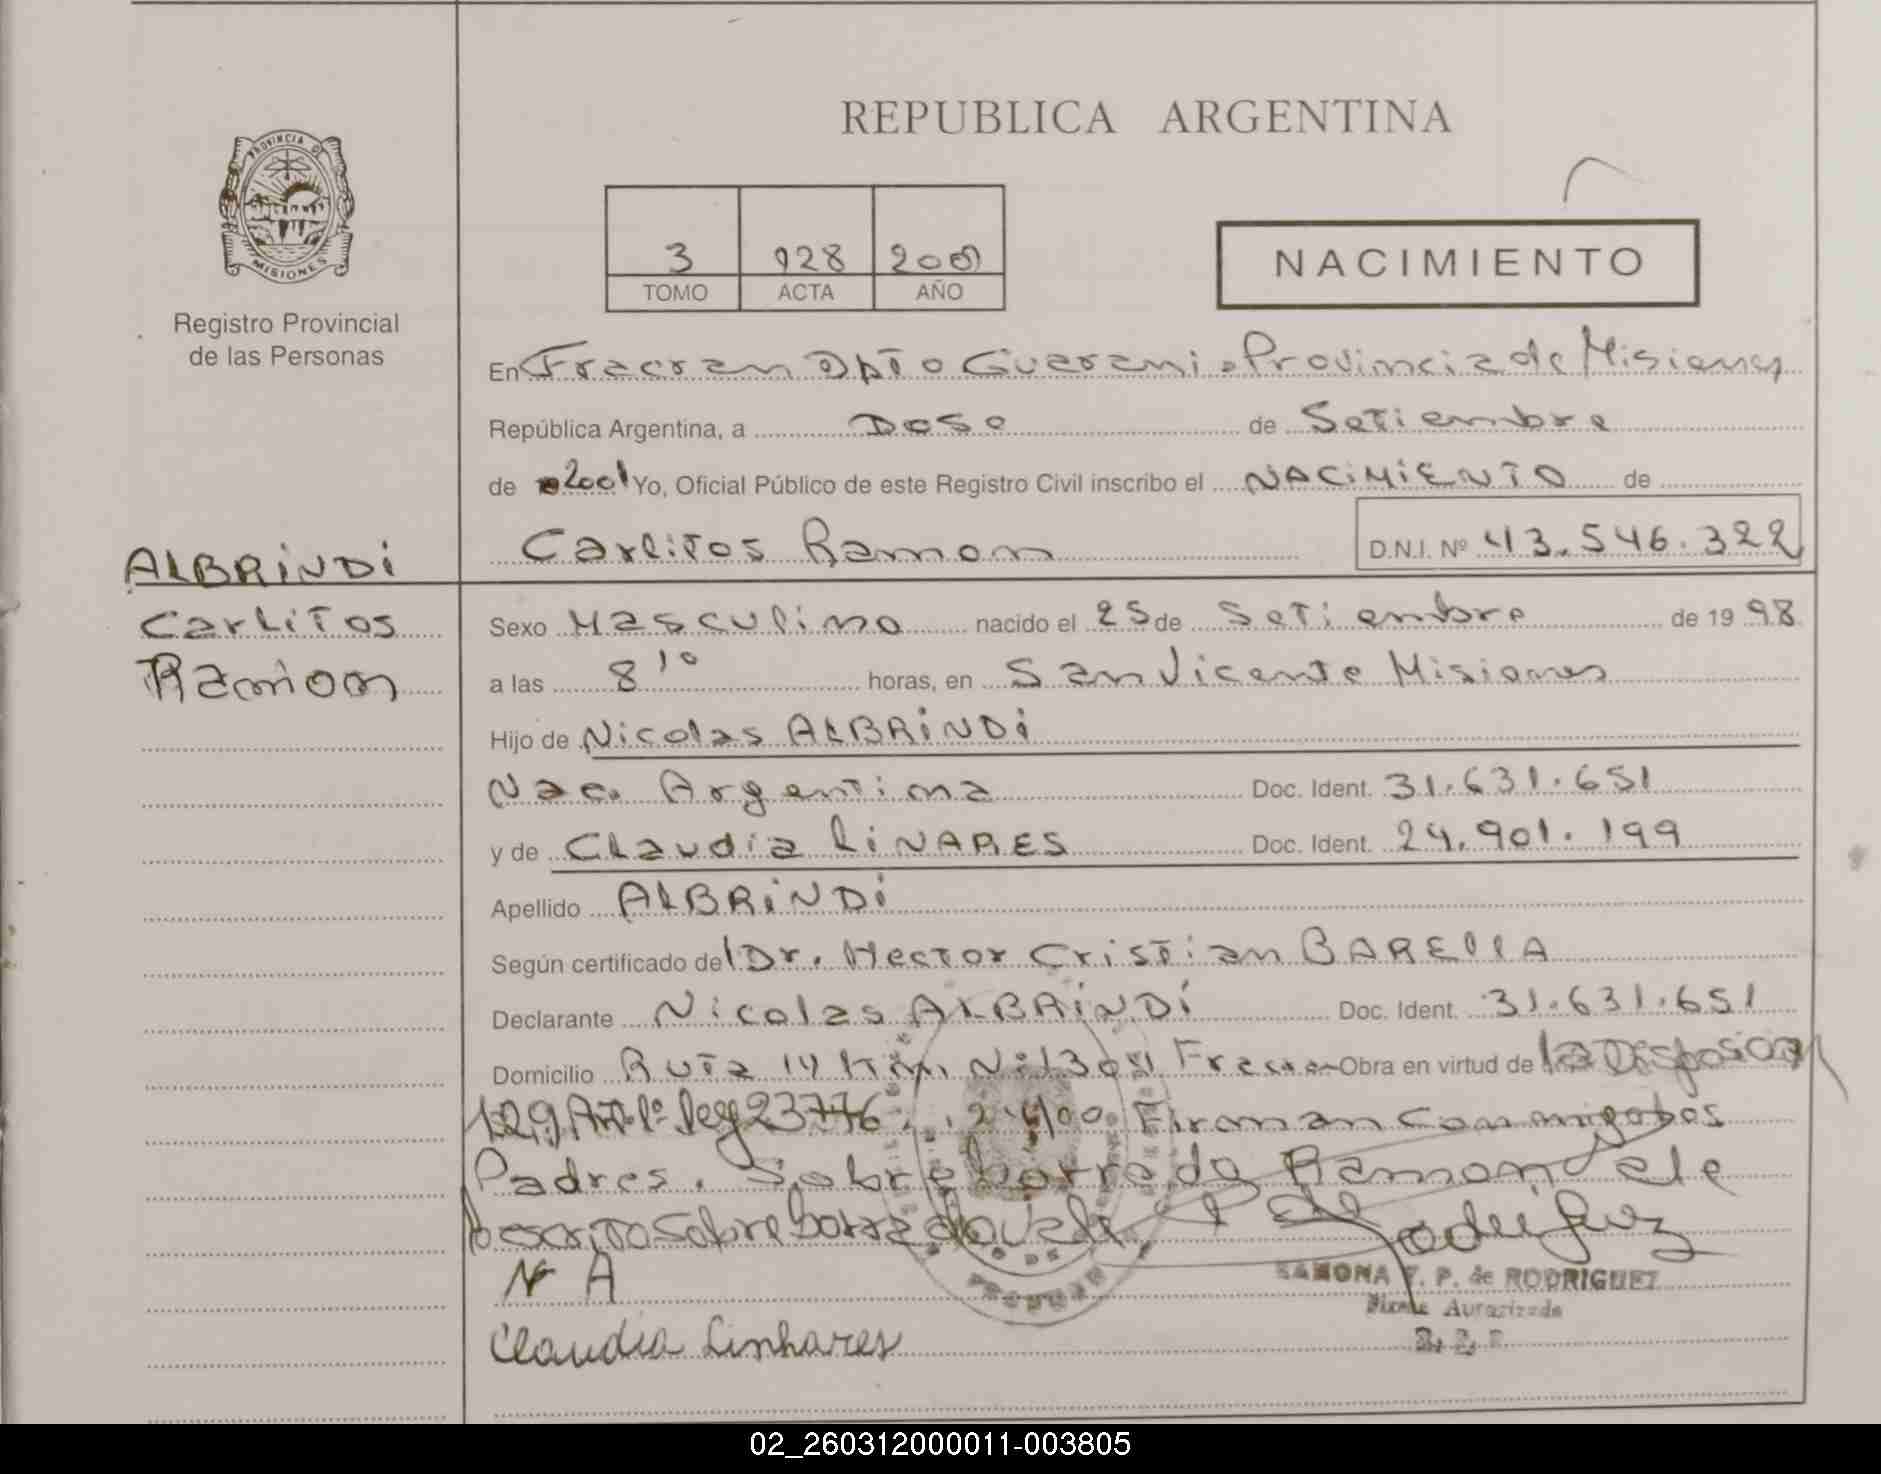 REPUBLICA ARGENTINA
PROVINCIA DE
MISIONES
Registro Provincial
de las Personas
3 928 2001
TOMO ACTA AÑO
NACIMIENTO
En Fracran Dpto Guarani Provincia de Misiones
República Argentina, a Dose de Setiembre
de 2001 Yo, Oficial Público de este Registro Civil inscribo el NACIMIENTO de
Carlitos Ramon D.N.I. Nº 43.546.322
ALBRINDI
Carlitos
Ramon
Sexo Masculino nacido el 25 de Setiembre de 1998
a las 8 10 horas, en San Vicente Misiones
Hijo de Nicolas ALBRINDI
Nac. Argentina Doc. Ident. 31.631.651
y de Claudia LINARES Doc. Ident. 24.901.199
Apellido ALBRINDI
Según certificado del Dr. Hector Cristian BARELLA
Declarante Nicolas ALBRINDI Doc. Ident. 31.631.651
Domicilio Ruta 14 Km. Fracran Obra en virtud de la Disposicion
129 Art 1º ley 23776 Firman conmigo los
Padres. Sobre borrado Ramon vale
escrito sobre borrado vale
N A
RAMONA F. P. de RODRIGUEZ
Firma Autorizada
Claudia Linhares
02_260312000011-003805